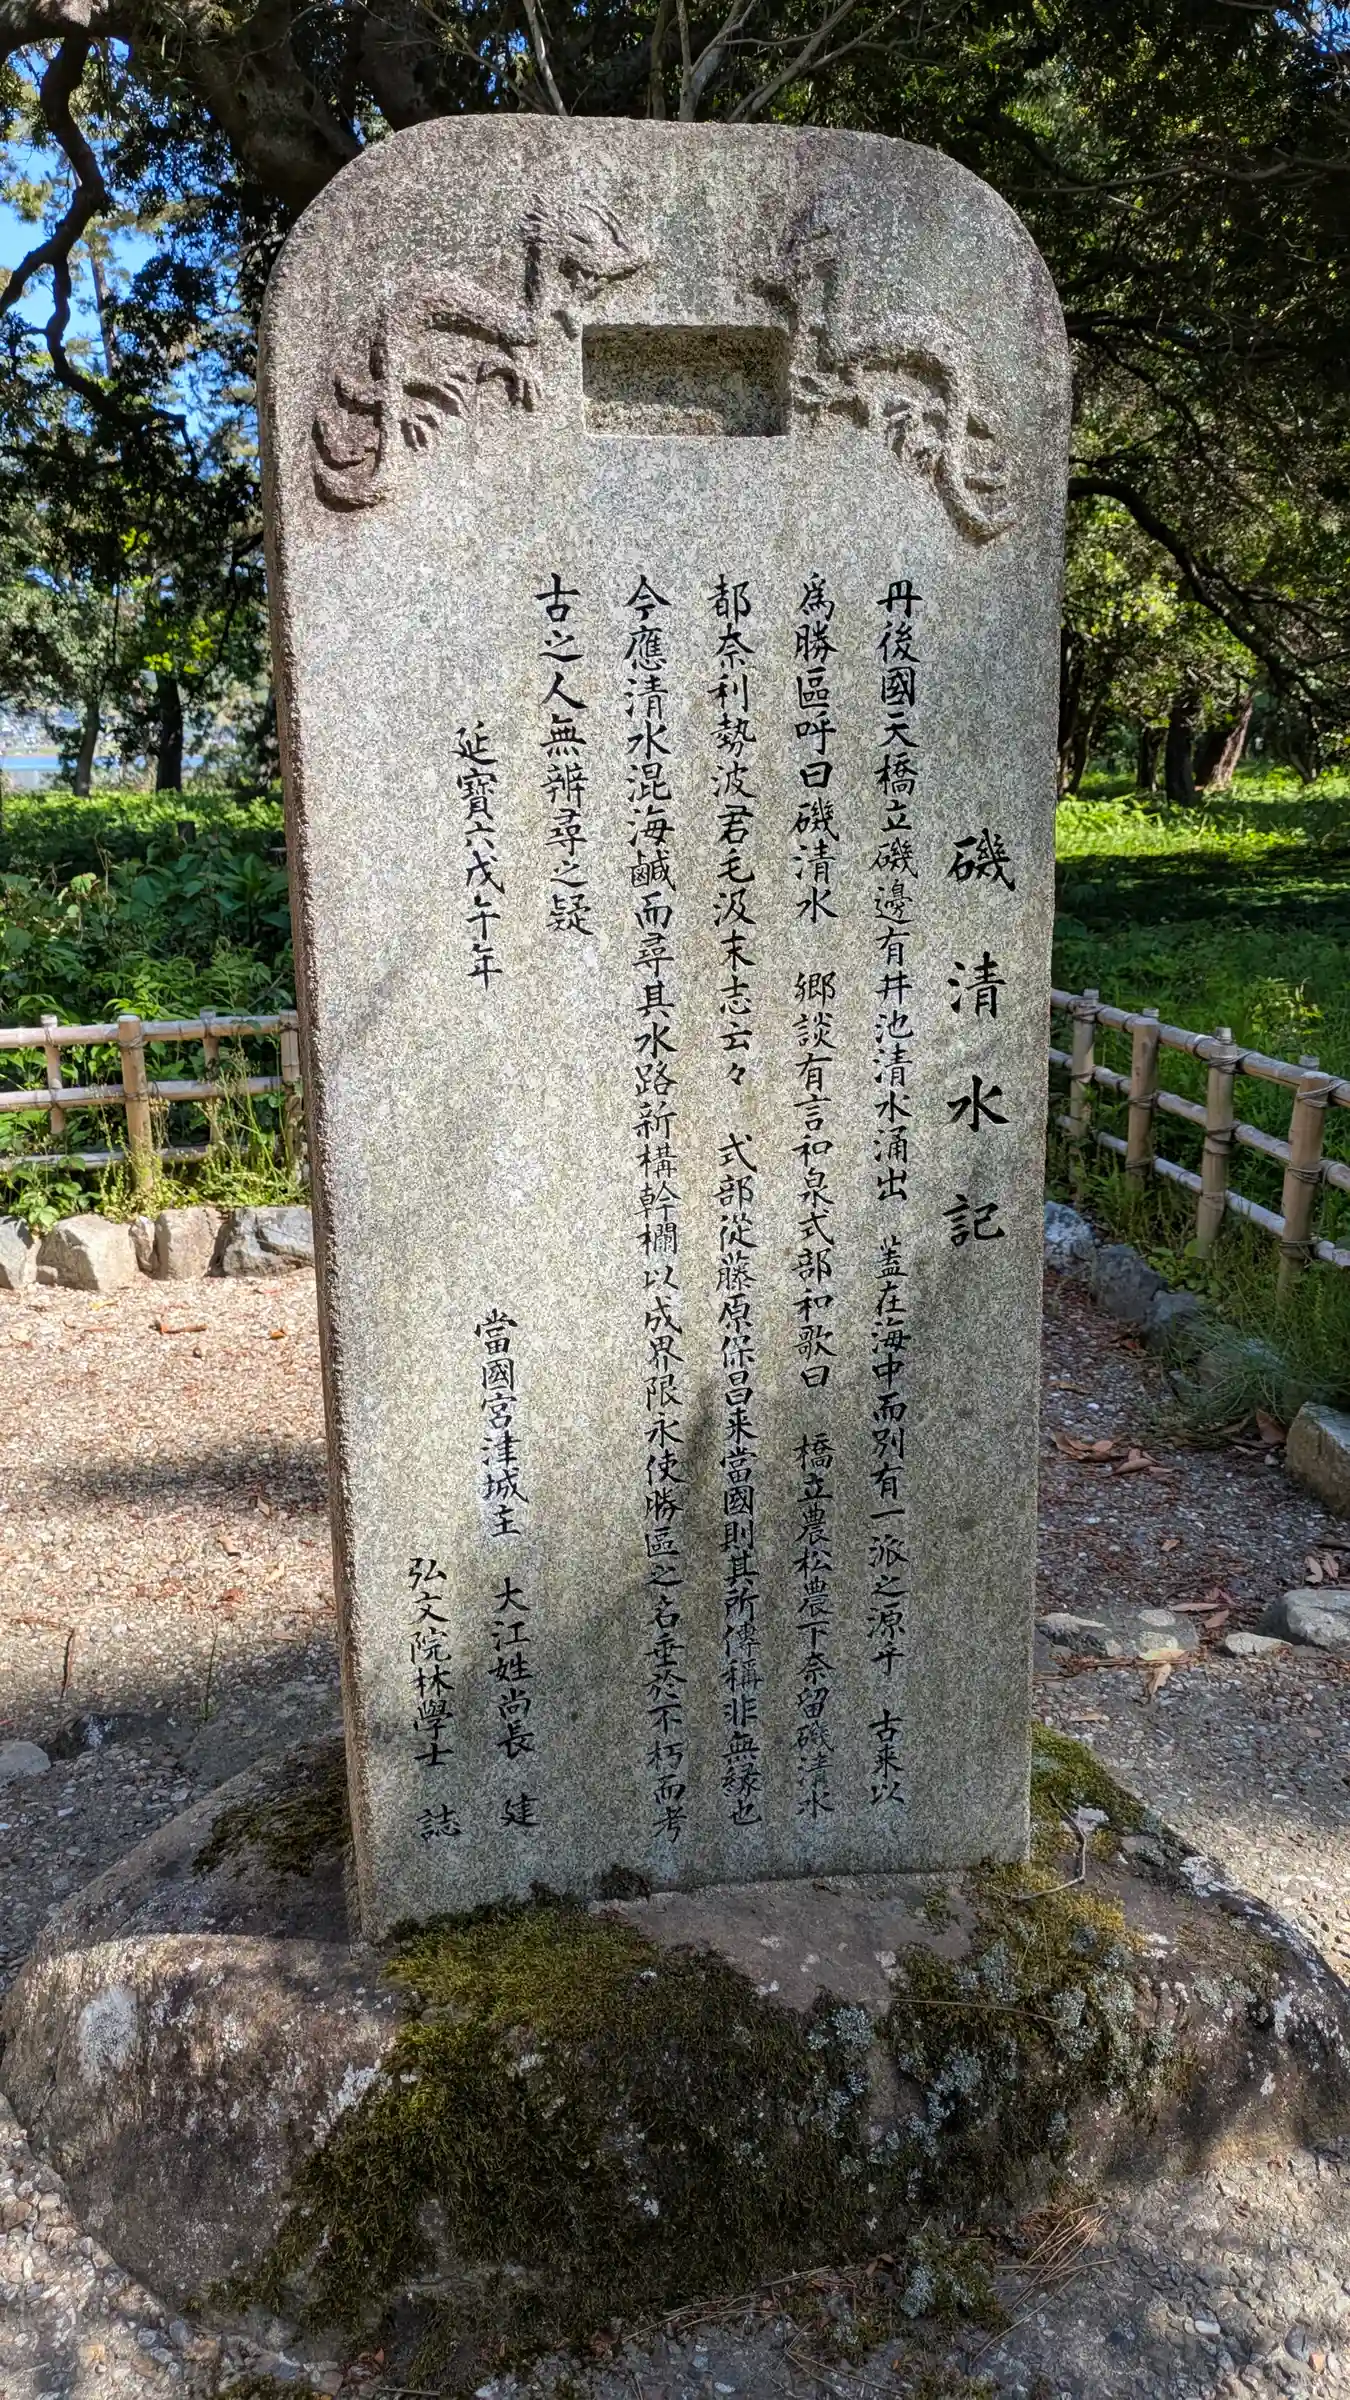 磯清水記
丹後國天橋立磯邊有井池清水涌出 蓋在海中而別有一派之源乎 古来以
為勝區呼曰磯清水 郷談有言和泉式部和歌曰 橋立農松農下奈留磯清水
都奈利勢波君毛汲末志云々 式部従藤原保昌来當國則其所傳稱非無縁也
今應清水混海鹹而尋其水路新構幹欄以成界限永使勝區之名垂於不朽而考
古之人無辨尋之疑
延寶六戊午年
當國宮津城主 大江姓尚長 建
弘文院林學士 誌